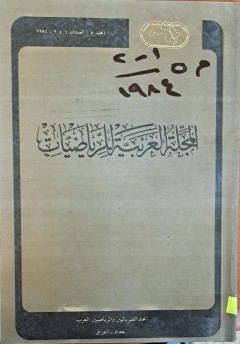 المجلد ٥ العددان ١ و ٢ ، ١٩٨٤
م ٥ ١-٢
١٩٨٤
المجلة العربية للرياضيات
اتحاد الفيزيائيين والرياضيين العرب
بغداد - العراق